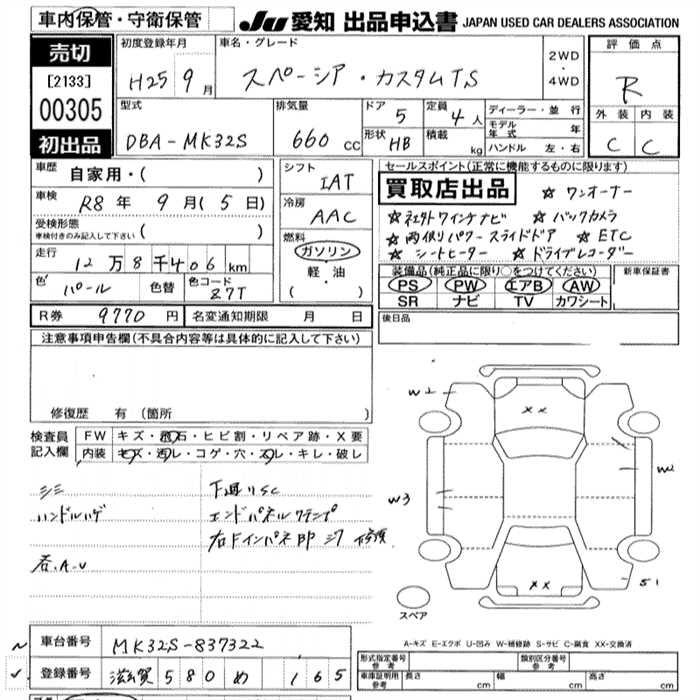 車内保管・守衛保管
JU 愛知 出品申込書 JAPAN USED CAR DEALERS ASSOCIATION
売切
[2133]
00305
初出品
初度登録年月
H25 9月
車名・グレード
スペーシア・カスタムTS
2WD
・
4WD
評価点
R
外装 内装
C C
型式
DBA-MK32S
排気量
660 cc
ドア 5
形状 HB
定員 4人
積載 kg
ディーラー・並行
モデル年式 年
ハンドル 左・右
車歴
自家用・( )
車検
R8年 9月(5日)
受検形態
車検付きのみ記入して下さい ( )
走行
12万8千406km
色 パール 色替 色コード Z7T
シフト
IAT
冷房
AAC
燃料
ガソリン
軽・油
( )
セールスポイント(正常に機能するものに限ります)
買取店出品 ☆ワンオーナー
☆社外ワインチナビ ☆バックカメラ
☆両側パワースライドドア ☆ETC
☆シートヒーター ☆ドライブレコーダー
装備品(純正品に限り○をつけてください)
PS PW エアB AW
SR ナビ TV カワシート
新車保証書
後日品
R券 9770円 名変通知期限 月 日
注意事項申告欄(不具合内容等は具体的に記入して下さい)
修復歴 有(箇所 )
検査員記入欄
FW キズ・飛石・ヒビ割・リペア跡・X要
内装 キズ・汚レ・コゲ・穴・スレ・キレ・破レ
シミ
ハンドルハゲ
下廻りSC
エンドパネルクランプ
W2
XX
W3
W2
XX
S1
スペア
A-キズ E-エクボ U-凹み W-補修跡 S-サビ C-腐食 XX-交換済
車台番号 MK32S-837322
登録番号 滋賀 580 め 165
形式指定番号 参考
類別区分番号 参考
車庫証明用 参考 長さ cm 幅 cm 高さ cm